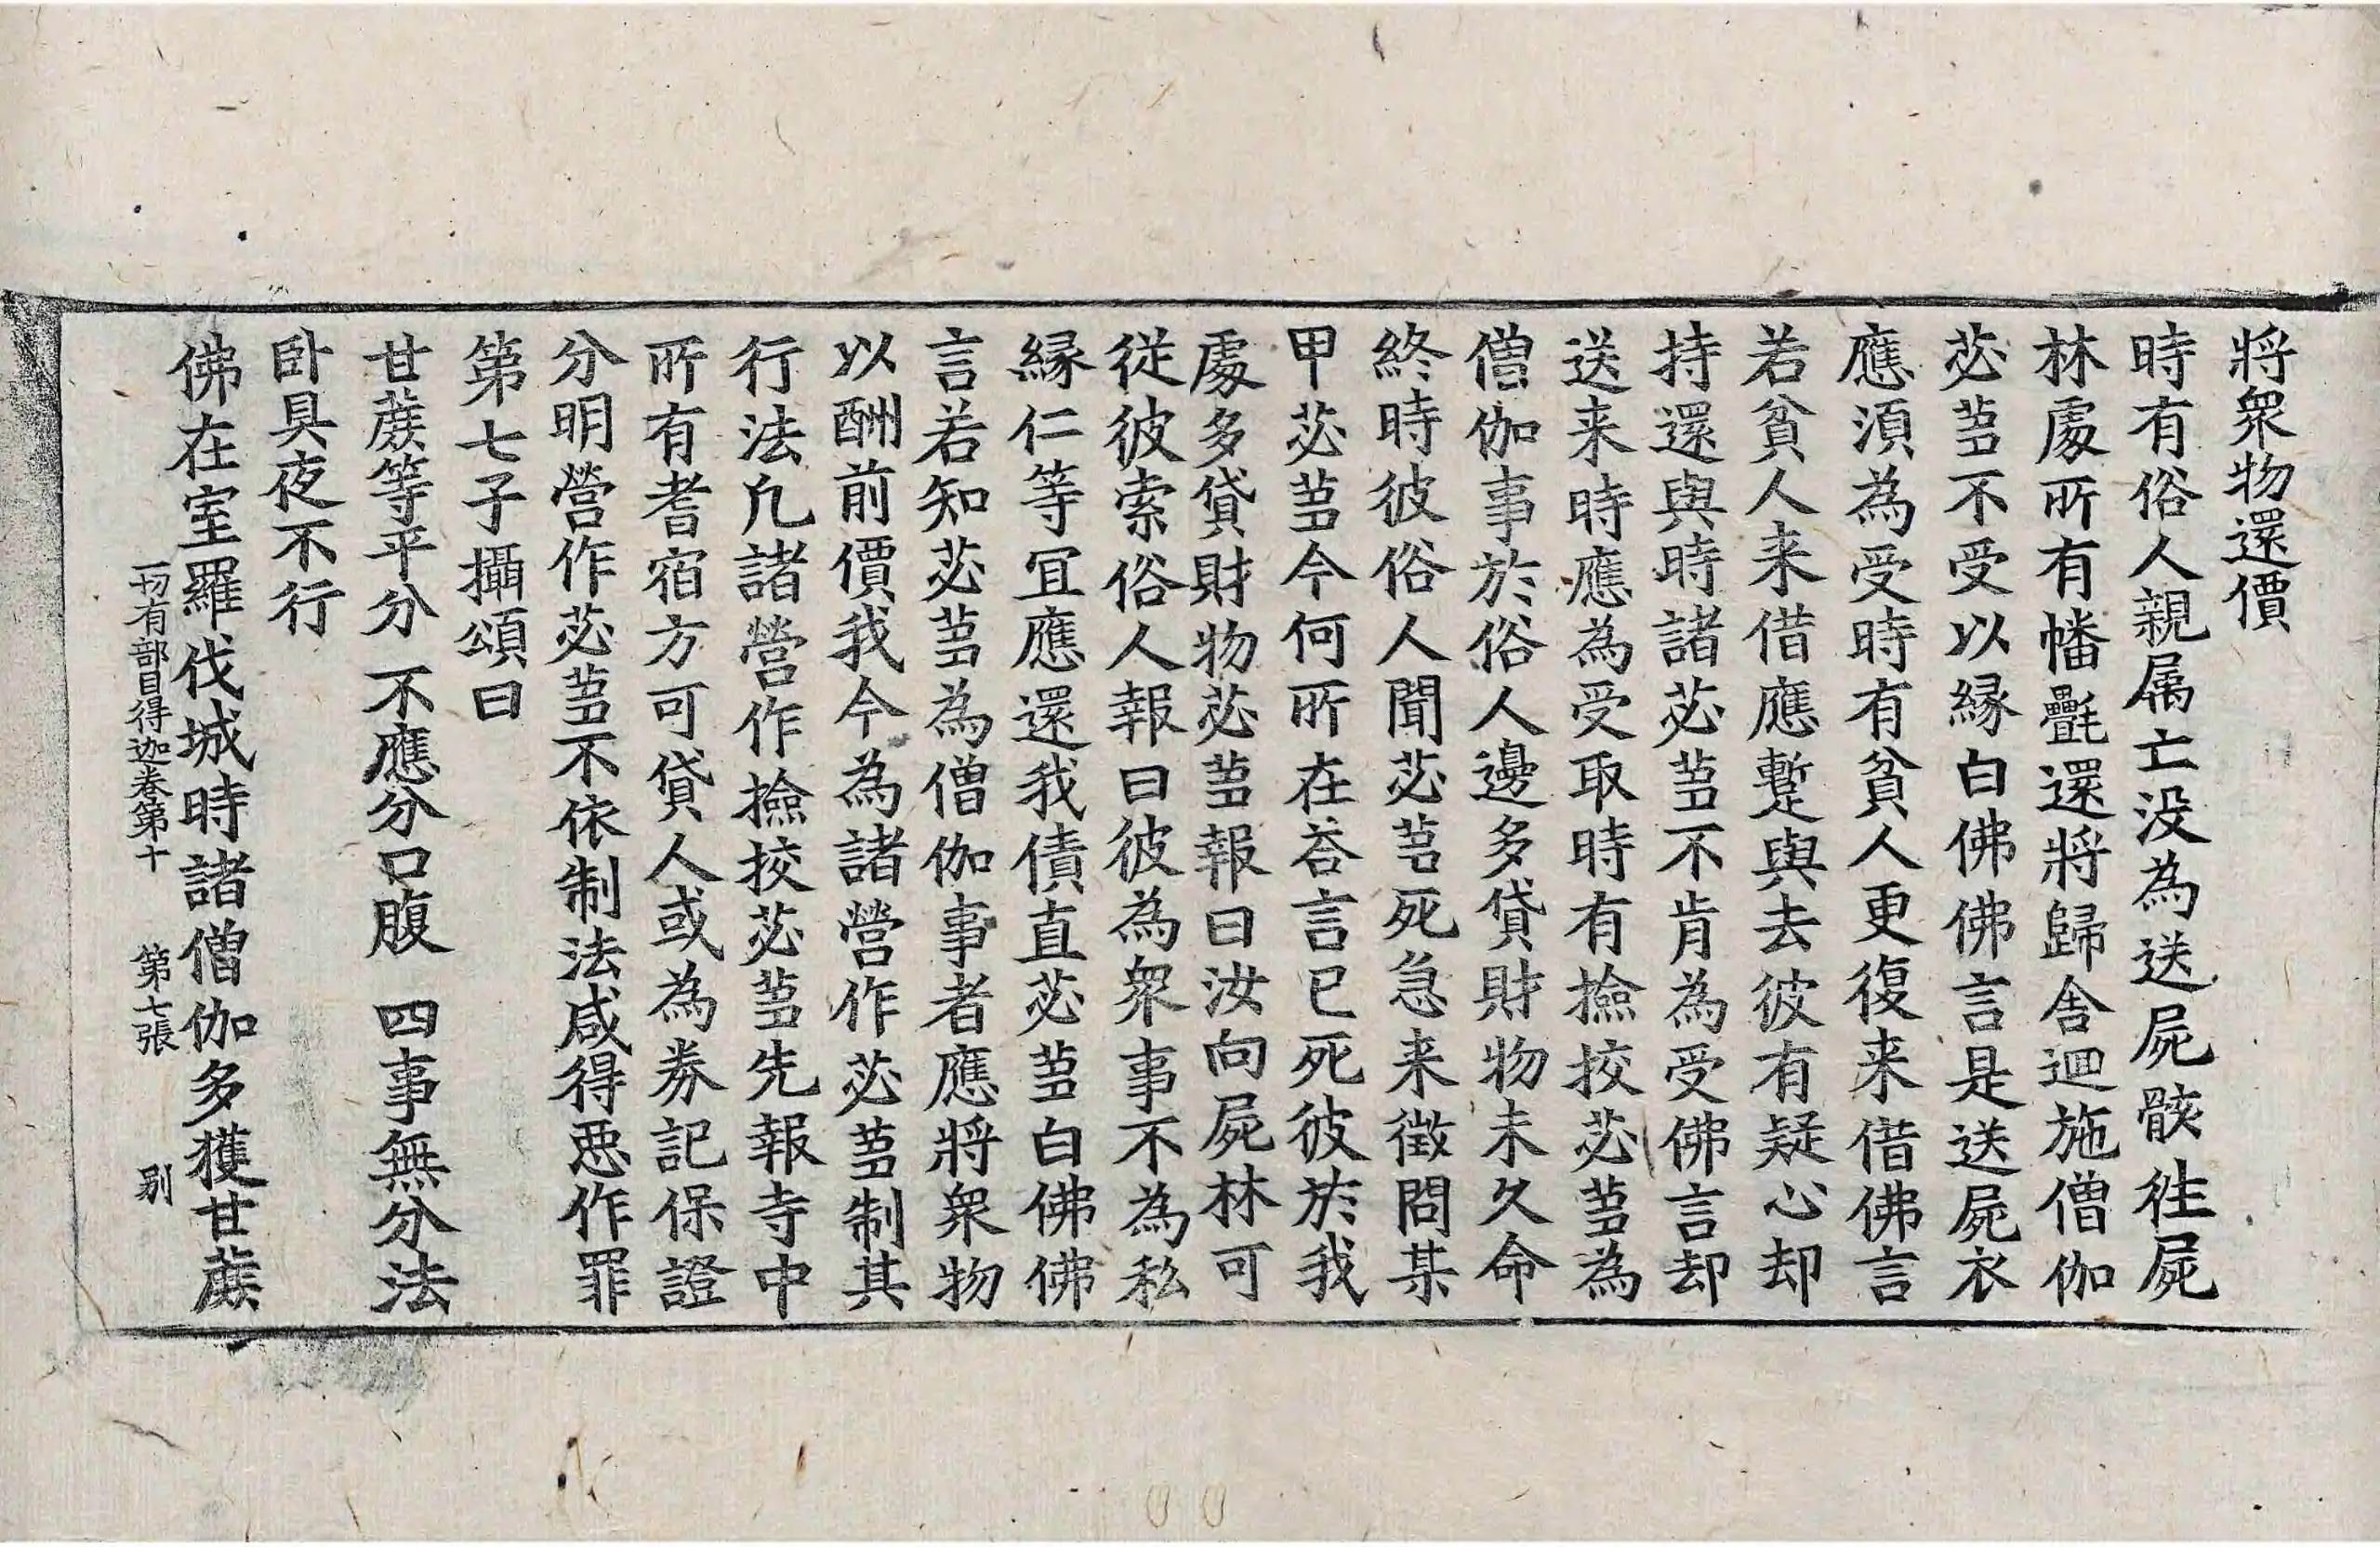 將衆物還價
時有俗人親属亡没為送屍骸徃屍
林處所有幡㲲還將歸舍迴施僧伽
苾芻不受以縁白佛佛言是送屍衣
應湏為受時有貧人更復来借佛言
若貧人来借應蹔與去彼有疑心却
持還與時諸苾芻不肯為受佛言却
送来時應為受取時有撿挍苾芻為
僧伽事於俗人邊多貸財物未久命
終時彼俗人聞苾芻死急来徵問某
甲苾芻今何所在荅言已死彼於我
處多貸財物苾芻報曰汝向屍林可
従彼索俗人報曰彼為衆事不為私
縁仁等冝應還我債直苾芻白佛佛
言若知苾芻為僧伽事者應將衆物
以酬前價我今為諸營作苾芻制其
行法凢諸營作撿挍苾芻先報寺中
所有耆宿方可貸人或為券記保證
分明營作苾芻不依制法咸得惡作罪
第七子攝頌曰
甘蔗等平分 不應分口腹 四事無分法
卧具夜不行
佛在室羅伐城時諸僧伽多獲甘蔗
一切有部目得迦卷第十 第七張 别